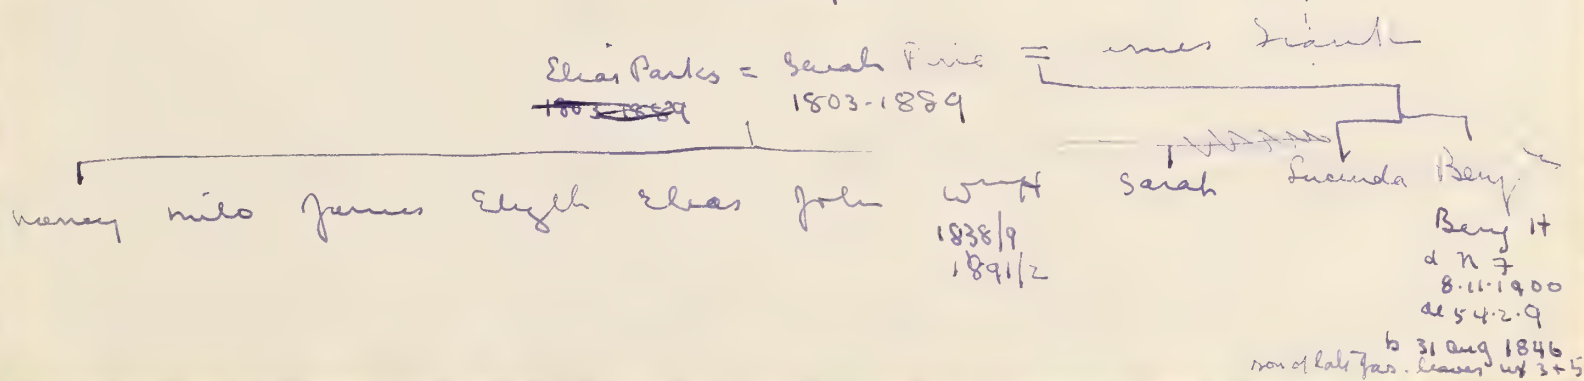 Elias Parks = Sarah = 
1803-1889 1803-1889
Milo James Elias John Wm H Sarah Lucinda Benj
1838/9
1891/2
Benj H
d N F
8.11.1900
ae 54.2.9
b 31 Aug 1846
son of late Jas. leaves wf 3 + 5